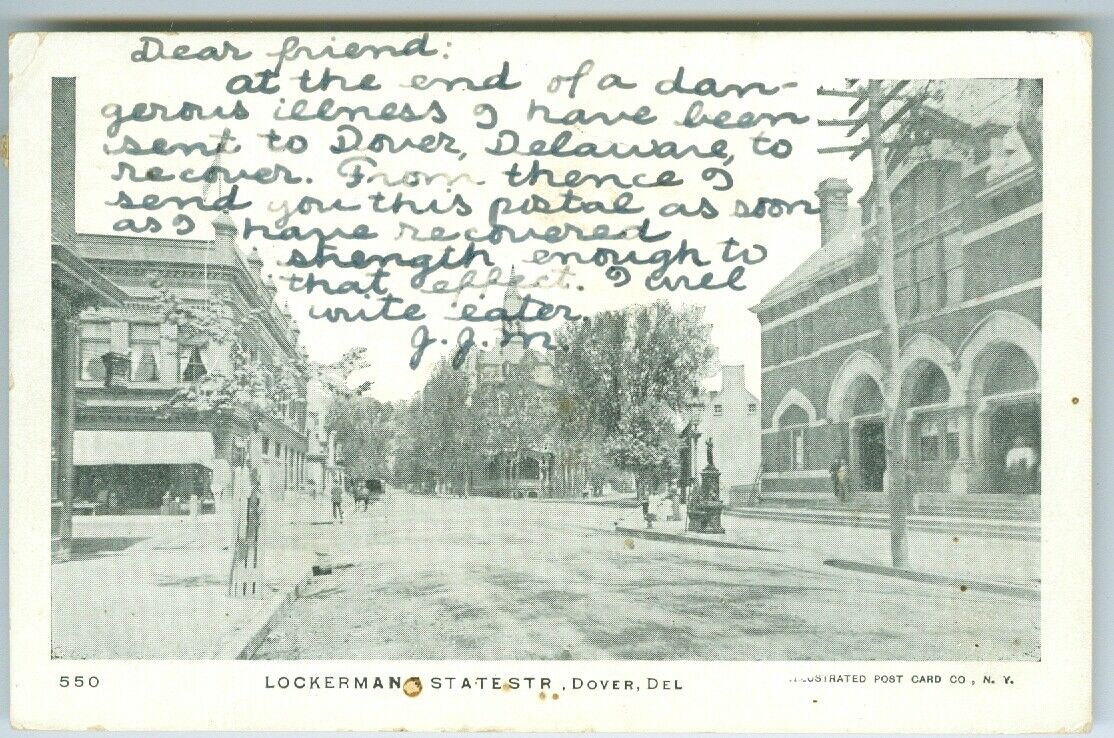 Dear friend:
at the end of a dan-
gerous illness I have been
sent to Dover, Delaware, to
recover. From thence I
send you this postal as soon
as I have recovered
strength enough to
that effect. I will
write later.
J. J. M.
550 LOCKERMAN STATE STR., DOVER, DEL ILLUSTRATED POST CARD CO., N. Y.